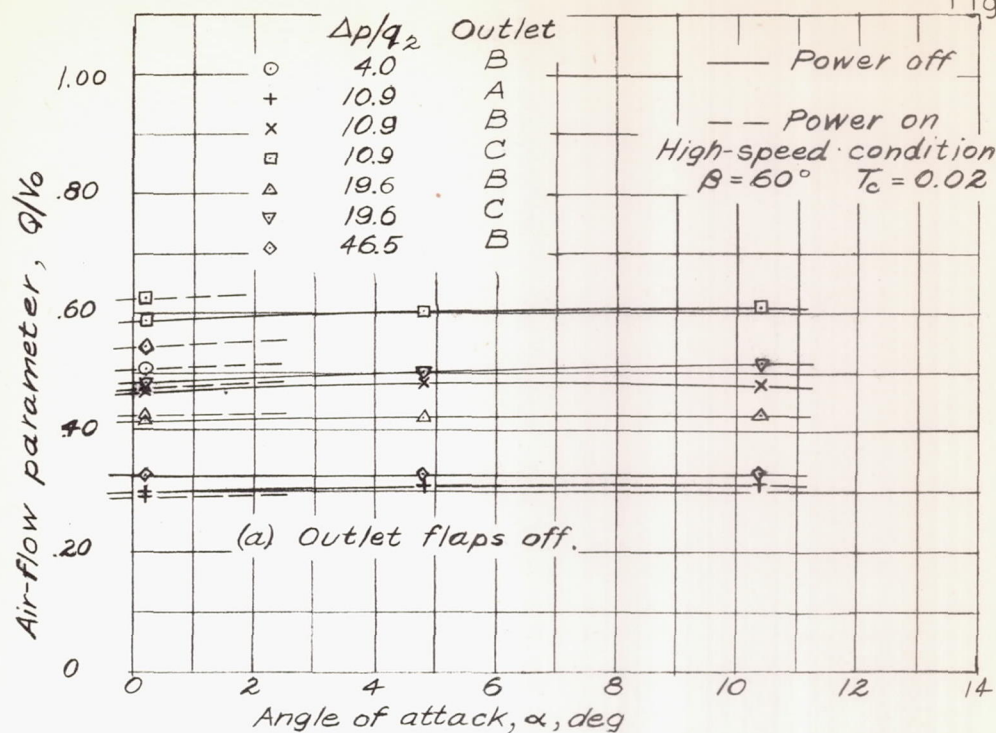 Fig
Δp/q₂ Outlet
4.0 B
10.9 A
10.9 B
10.9 C
19.6 B
19.6 C
46.5 B
Power off
Power on
High-speed condition
β = 60° T꜀ = 0.02
1.00
.80
.60
.40
.20
0
Air-flow parameter, Q/V₀
(a) Outlet flaps off.
0 2 4 6 8 10 12 14
Angle of attack, α, deg